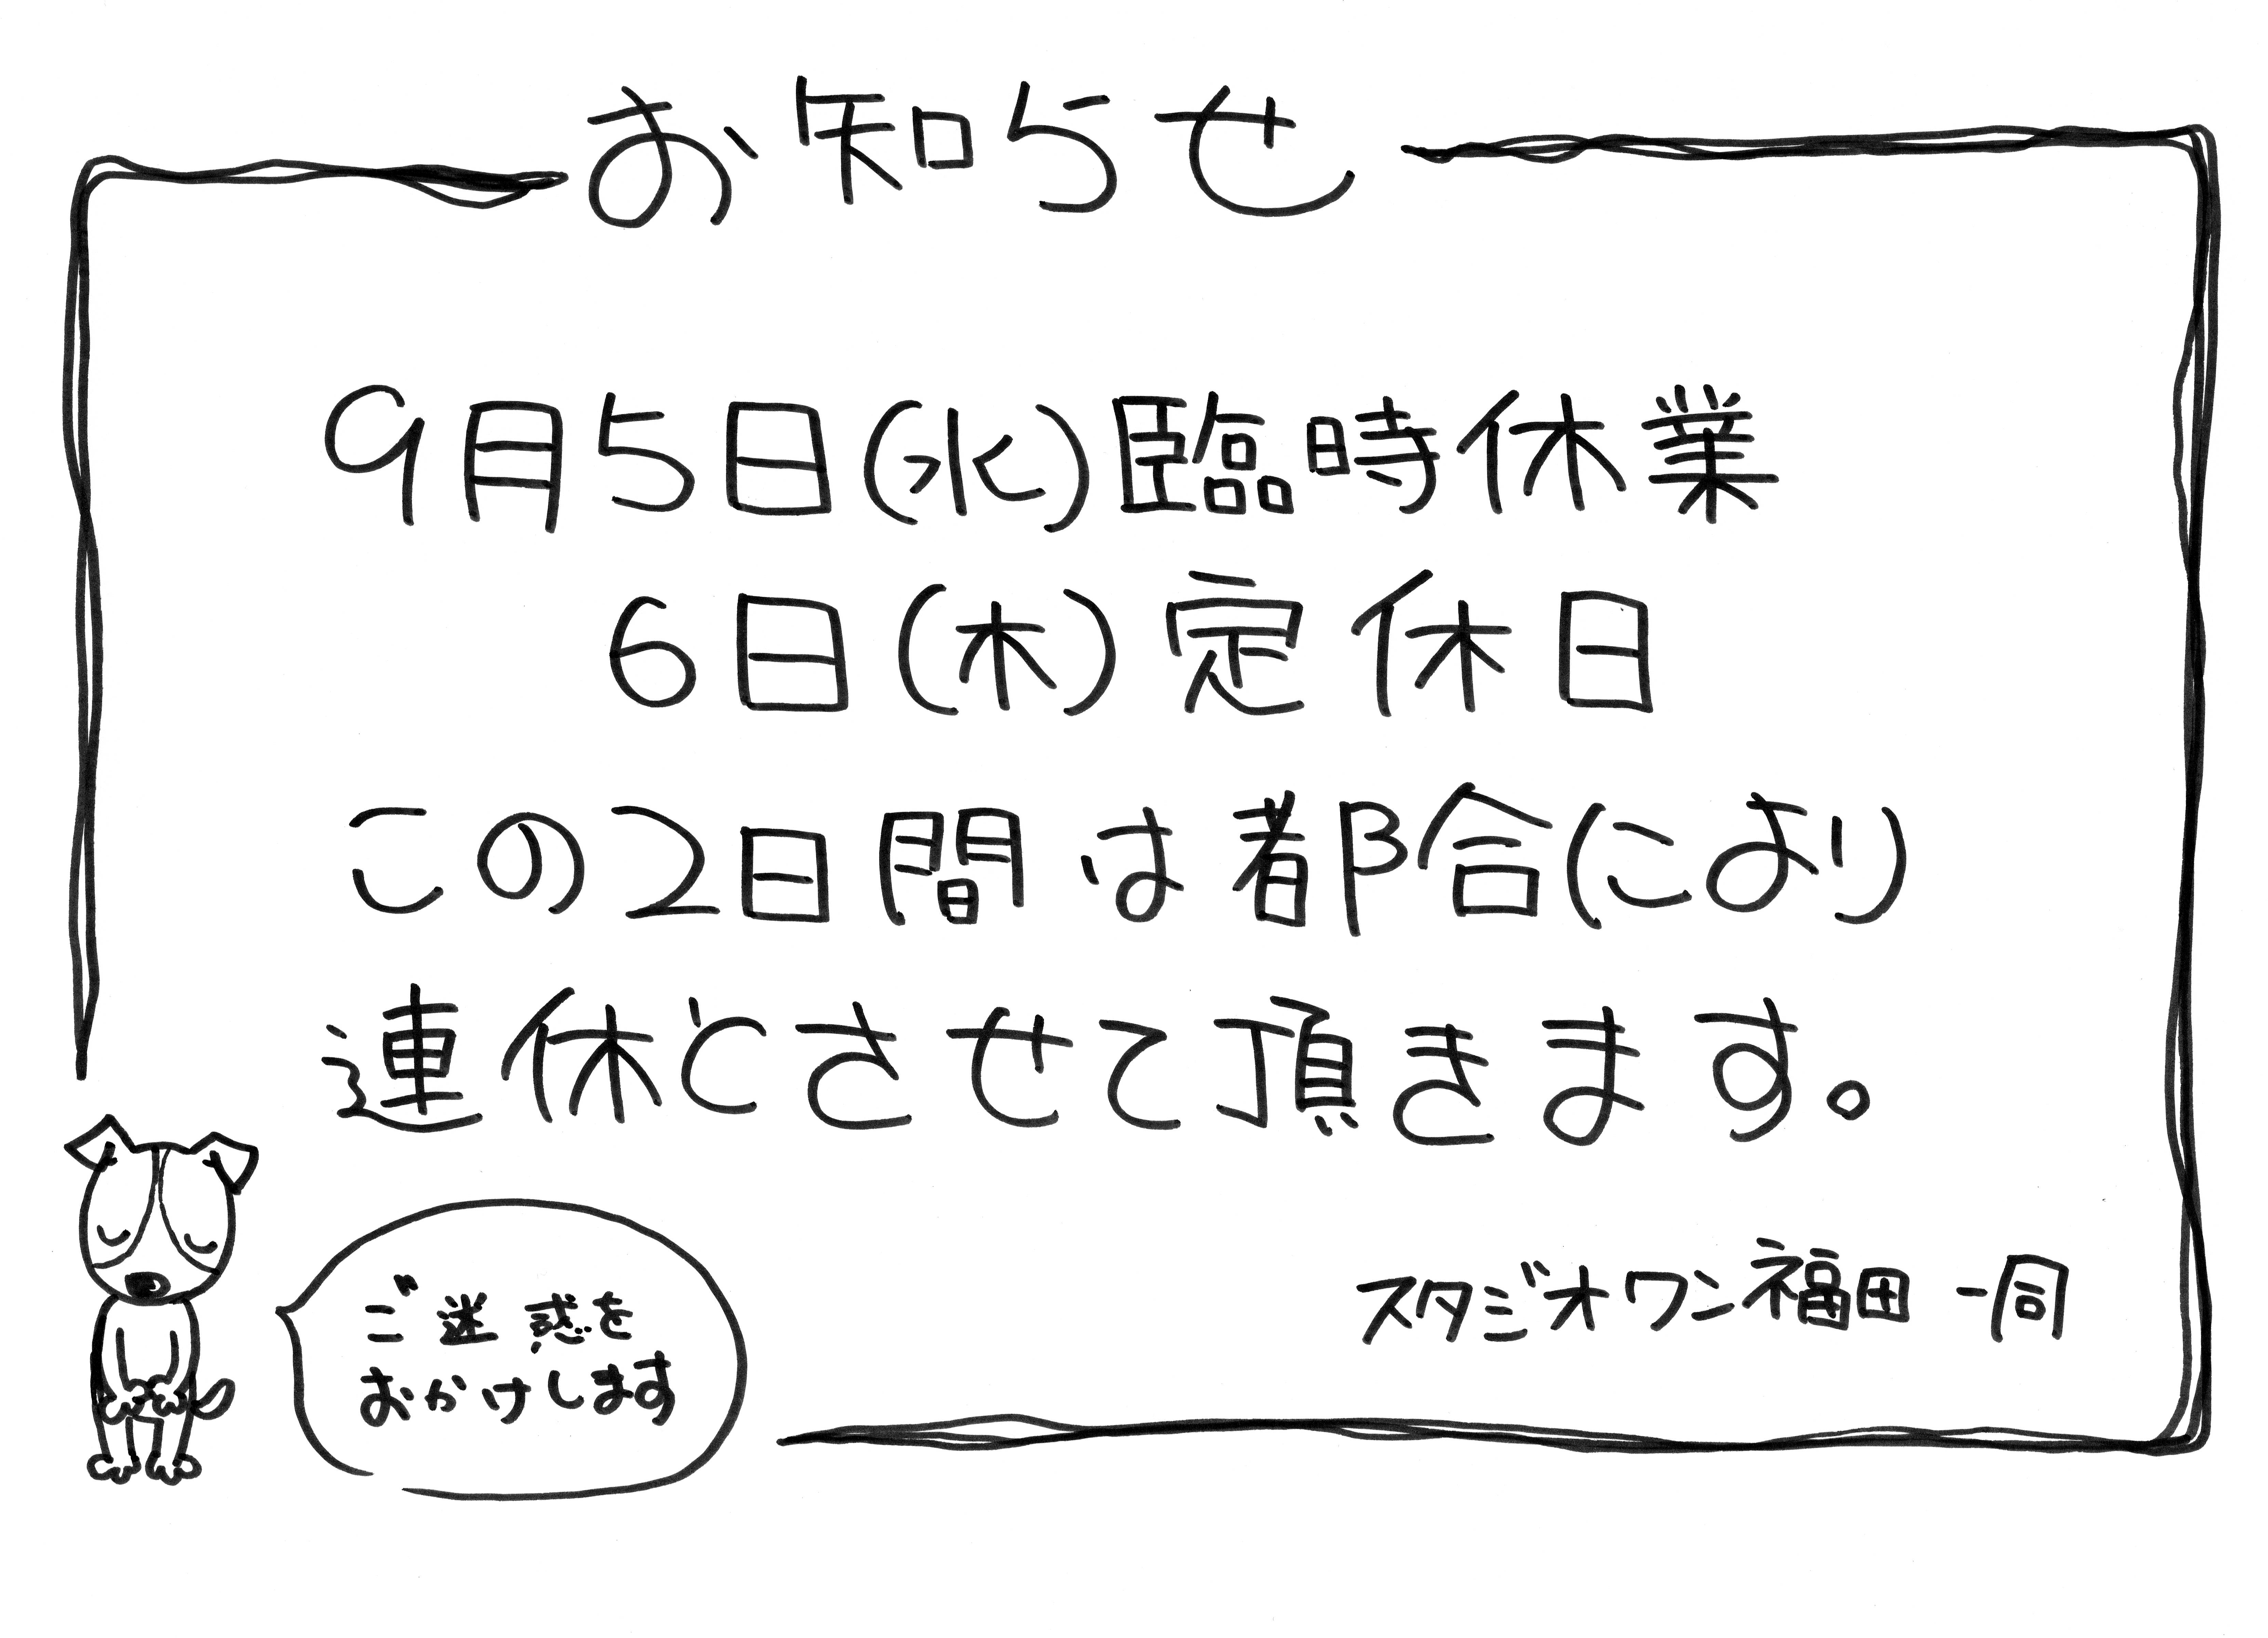 お知らせ
9月5日(水)臨時休業
6日(木)定休日
この2日間は都合により
連休とさせて頂きます。
スタジオワン福田一同
ご迷惑を
おかけします